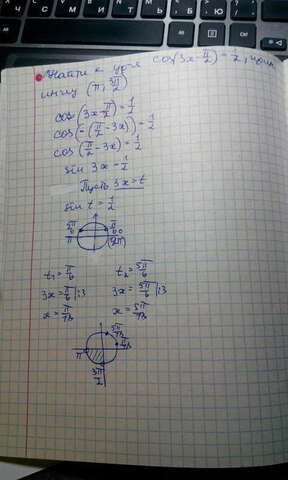 Найти к. ур-я cos(3x-π/2)=1/2, 
инт (π; 3π/2)
cos(3x-π/2)=1/2
cos(-(π/2-3x))=1/2
cos(π/2-3x)=1/2
sin 3x=1/2
Пусть 3x=t
sin t=1/2
5π/6 π/6
π 0 (2π)
t₁=π/6 t₂=5π/6
3x=π/6 |:3 3x=5π/6 |:3
x=π/18 x=5π/18
5π/18
π π/18
3π/2